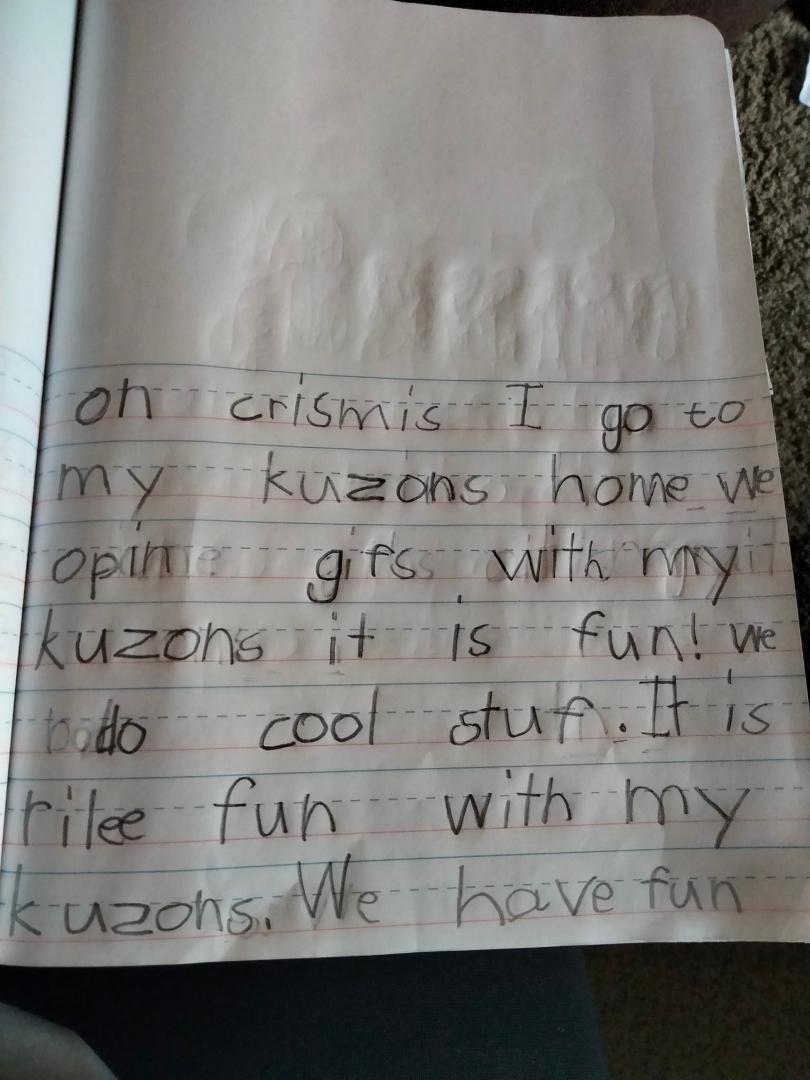 on crismis I go to
my kuzons home we
opin gifs with my
kuzons it is fun! we
do cool stuf. It is
rilee fun with my
kuzons. We have fun